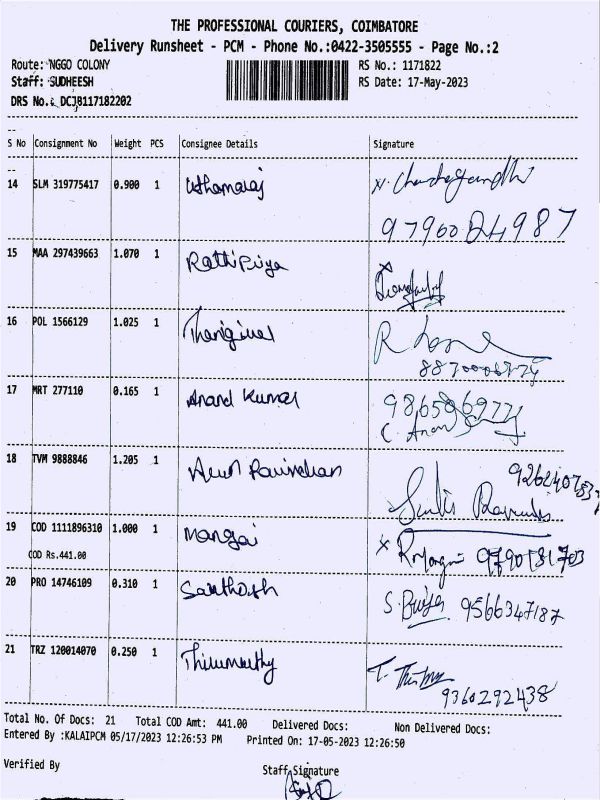 THE PROFESSIONAL COURIERS, COIMBATORE
Delivery Runsheet - PCM - Phone No.:0422-3505555 - Page No.:2
Route: NGGO COLONY RS No.: 1171822
Staff: SUDHEESH RS Date: 17-May-2023
DRS No.: DCJ8117182202
S No Consignment No Weight PCS Consignee Details Signature
14 SLM 319775417 0.900 1 Uthamaraj
15 MAA 297439663 1.070 1 Rathi Priya
16 POL 1566129 1.025 1
17 MRT 277110 0.165 1 Anand Kumar
18 TVM 9888846 1.205 1 Arun Ravindran
19 COD 1111896310 1.000 1 Mangai
COD Rs.441.00
9790581703
20 PRO 14746109 0.310 1 Santhosh
9566347187
21 TRZ 120014070 0.250 1 Thirumurthy
9360292438
Total No. Of Docs: 21 Total COD Amt: 441.00 Delivered Docs: Non Delivered Docs:
Entered By :KALAIPCM 05/17/2023 12:26:53 PM Printed On: 17-05-2023 12:26:50
Verified By Staff Signature